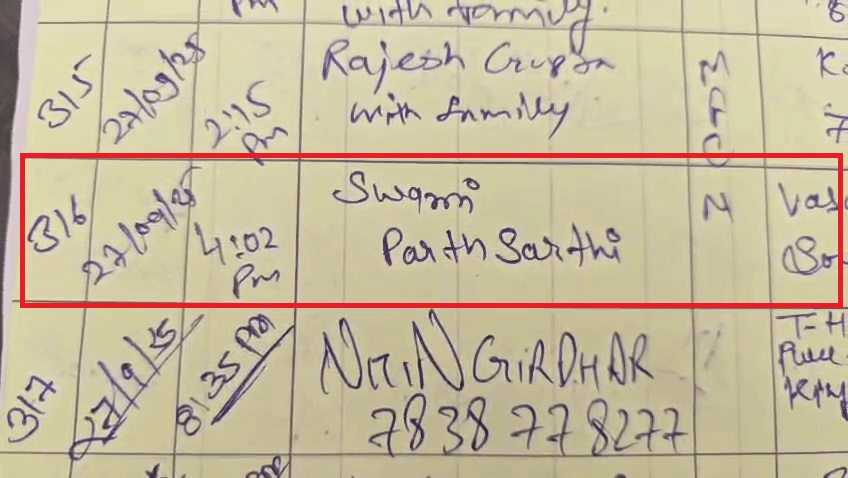 with family.
315 27/09/25 2:15 Pm Rajesh Gupta
with family
316 27/09/25 4:02 Pm Swami
Parth Sarthi
317 27/9/25 8:35 PM NITIN GIRDHAR
7838 778277